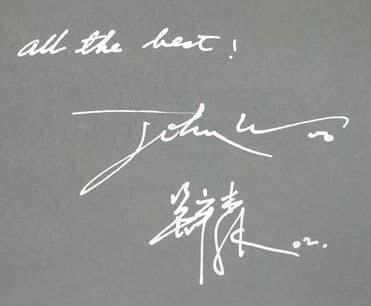 all the best!
John Woo
吴宇森 02.